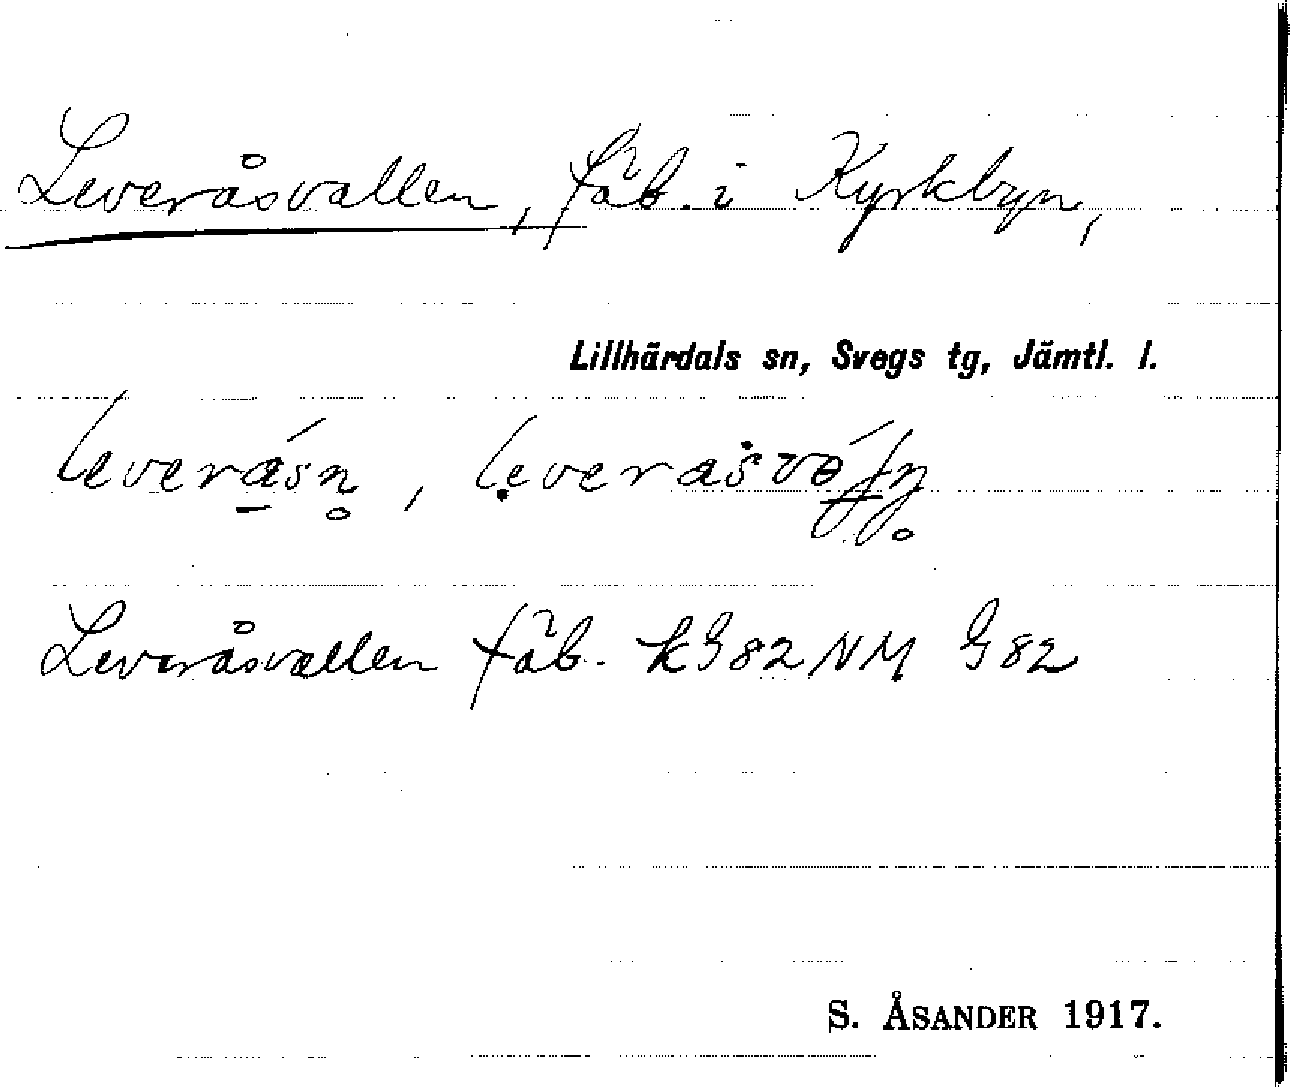 Leveråsvallen, fäb. i Kyrkbyn,
Lillhärdals sn, Svegs tg, Jämtl. l.
leveråsn̥,
Leveråsvallen fäb. kG82NM G82
S. ÅSANDER 1917.